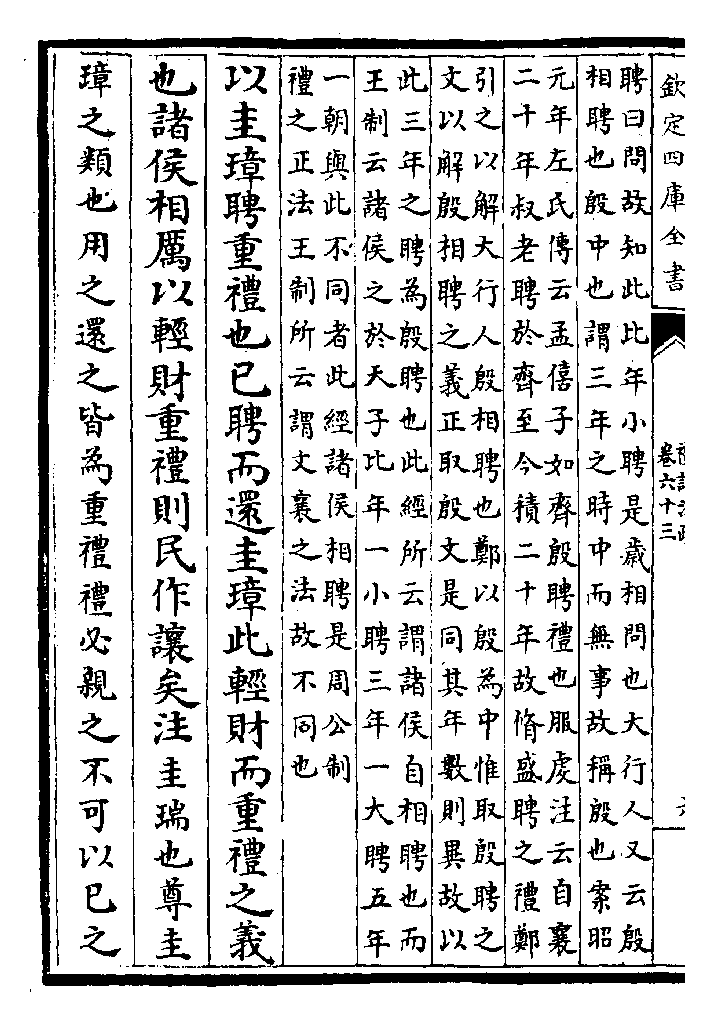 欽定四庫全書
卷六十三
聘曰問故知此比年小聘是歲相問也大行人又云殷
相聘也殷中也謂三年之時中而無事故稱殷也案昭
元年左氏傳云孟僖子如齊殷聘禮也服虔注云自襄
二十年叔老聘於齊至今積二十年故脩盛聘之禮鄭
引之以解大行人殷相聘也鄭以殷為中惟取殷聘之
文以解殷相聘之義正取殷文是同其年數則異故以
此三年之聘為殷聘也此經所云謂諸侯自相聘也而
王制云諸侯之於天子比年一小聘三年一大聘五年
一朝與此不同者此經諸侯相聘是周公制
禮之正法王制所云謂文襄之法故不同也
以圭璋聘重禮也已聘而還圭璋此輕財而重禮之義
也諸侯相厲以輕財重禮則民作讓矣注圭瑞也尊圭
璋之類也用之還之皆為重禮禮必親之不可以已之